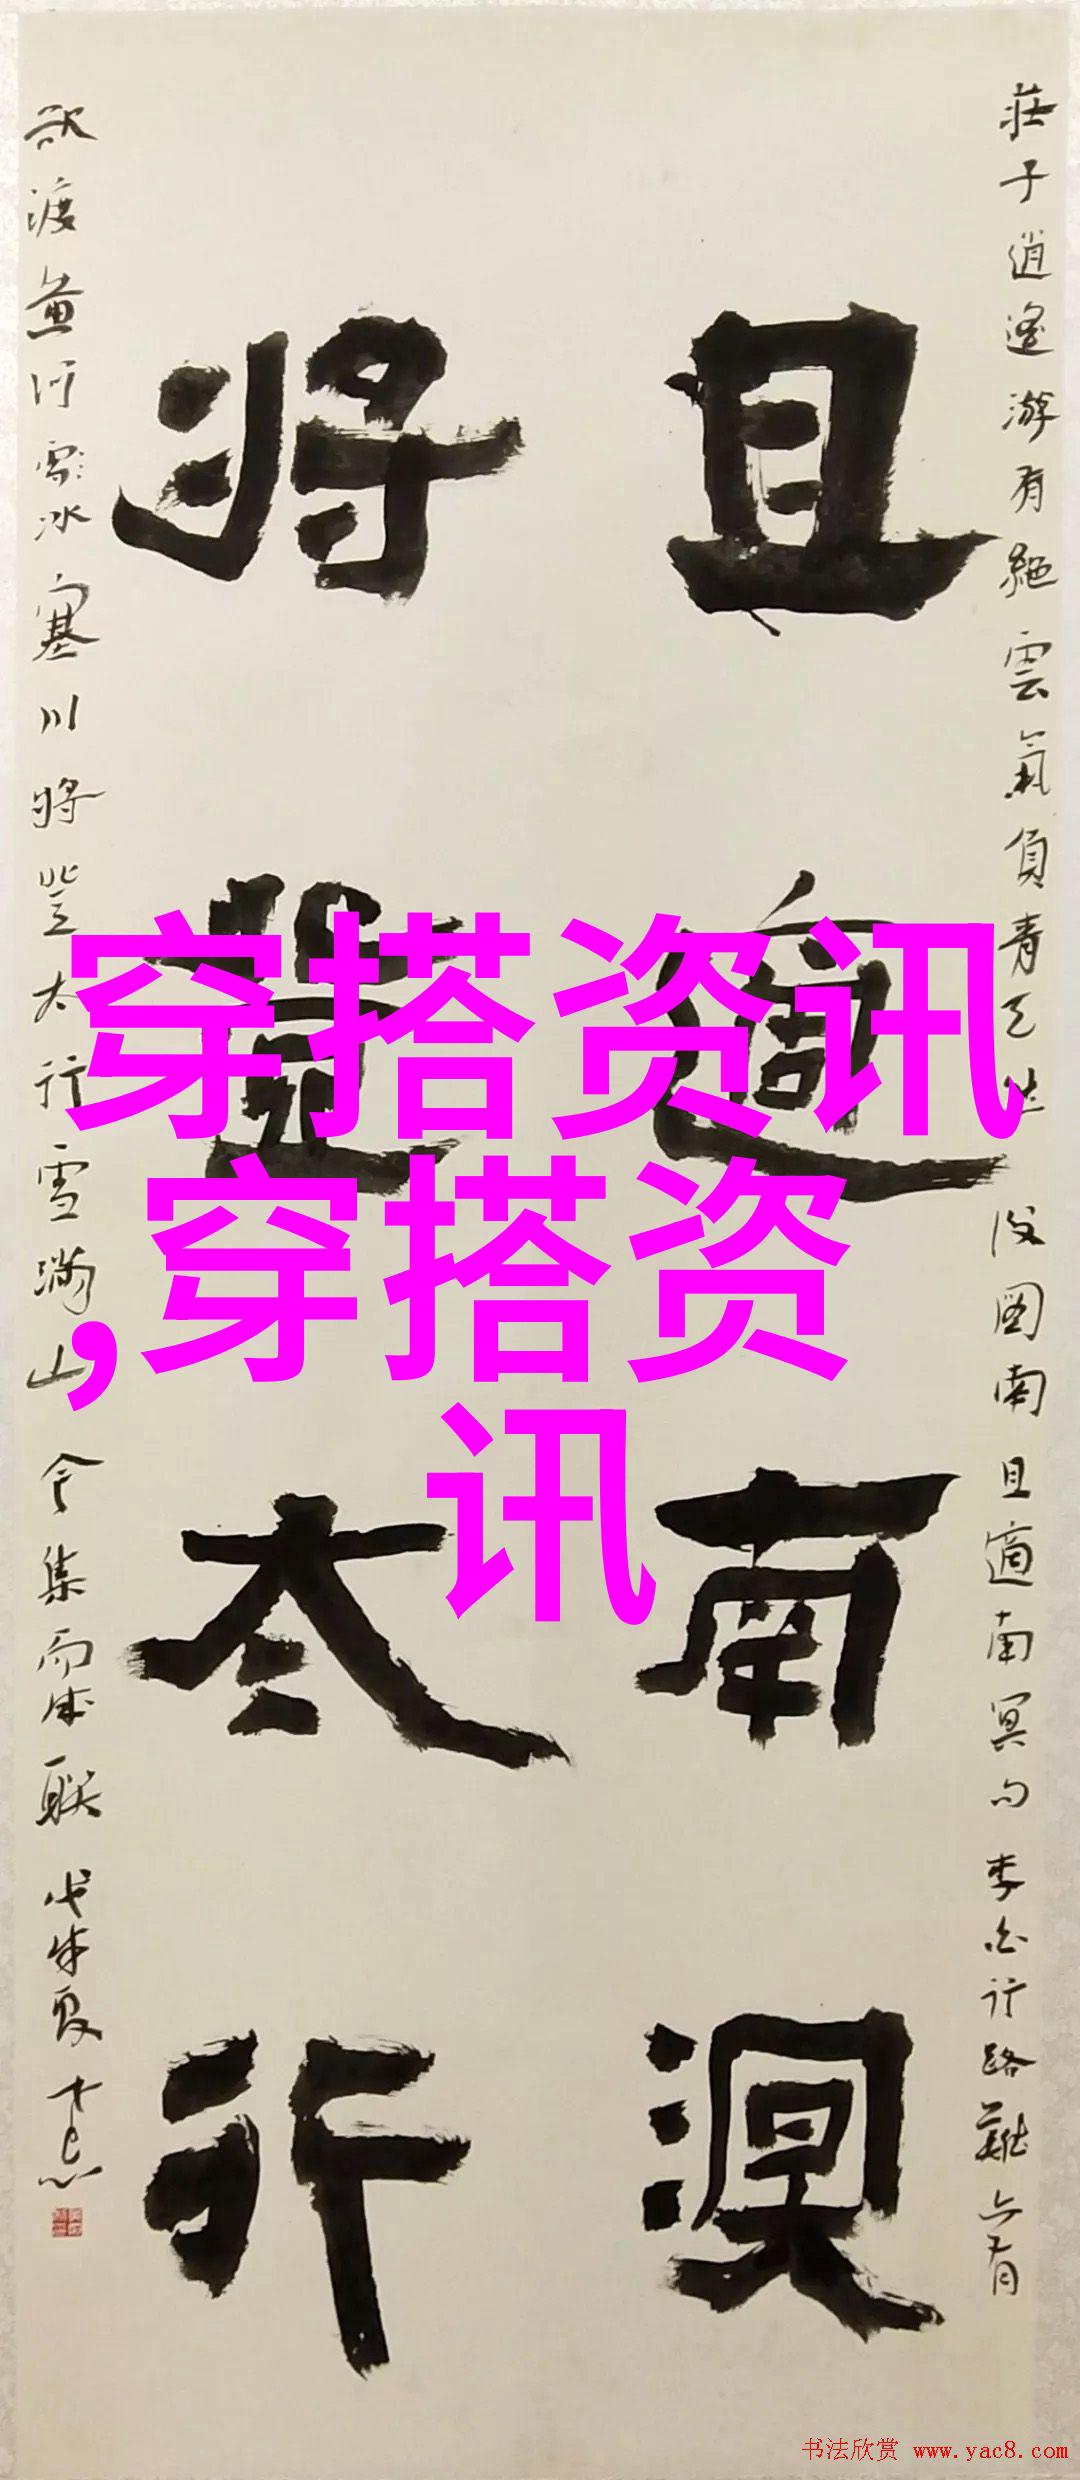 莊子逍遙游有絕雲氣負青天然後圖南且適南冥句李白行路難亦有
且適南溟
將登太行
欲渡黃河冰塞川將登太行雪滿山合集而成联戊戌夏
穿搭资讯
,穿搭资
讯
书法欣赏 www.yac8.com